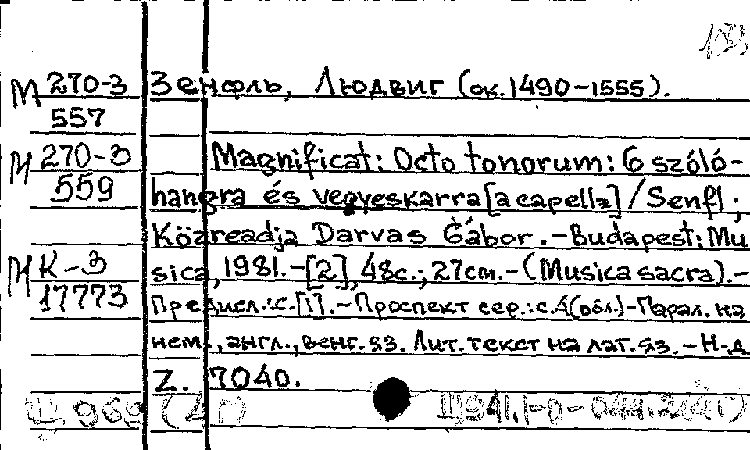 М 270-3 Зенфль, Людвиг (ок. 1490-1555).
557
М 270-3 Magnificat: Octo tonorum: 6 szóló-
559 hangra és vegyeskarra [a capella] / Senfl;
Közreadja Darvas Gábor. - Budapest: Mu
М К-3 sica, 1981. - [2], 48с.; 27см. - (Musica sacra). -
17773 Предисл.: с. [1]. - Проспект сер.: с. 4 (обл.) - Парал. на
нем., англ., венг. яз. Лит. текст на лат. яз. - Н-д
Z. 7040.